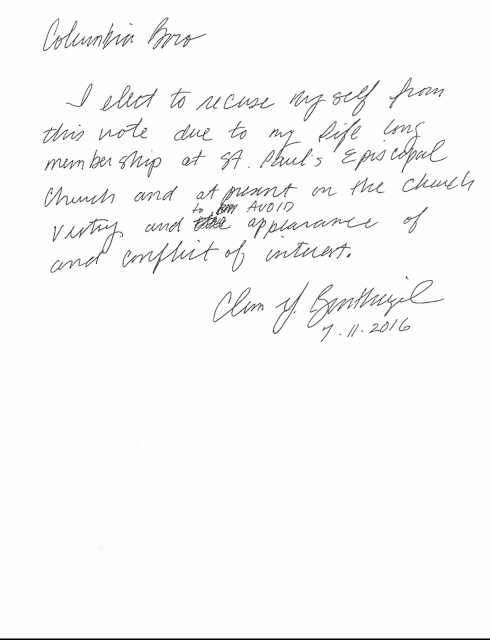 Columbia Boro
I elect to recuse my self from
this vote due to my life long
membership at St. Paul's Episcopal
Church and at present on the church
to AVOID
Vestry and appearance of
and conflict of interest.
7.11.2016